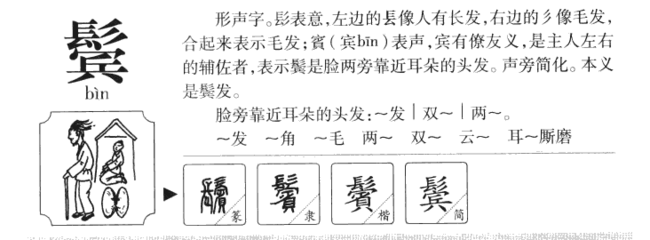 鬓
bìn
形声字。髟表意，左边的镸像人有长发，右边的彡像毛发，
合起来表示毛发；賓（宾bīn）表声，宾有僚友义，是主人左右
的辅佐者，表示鬓是脸两旁靠近耳朵的头发。声旁简化。本义
是鬓发。
脸旁靠近耳朵的头发：～发｜双～｜两～。
～发 ～角 ～毛 两～ 双～ 云～ 耳～厮磨
鬢 篆 鬢 隶 鬢 楷 鬓 简